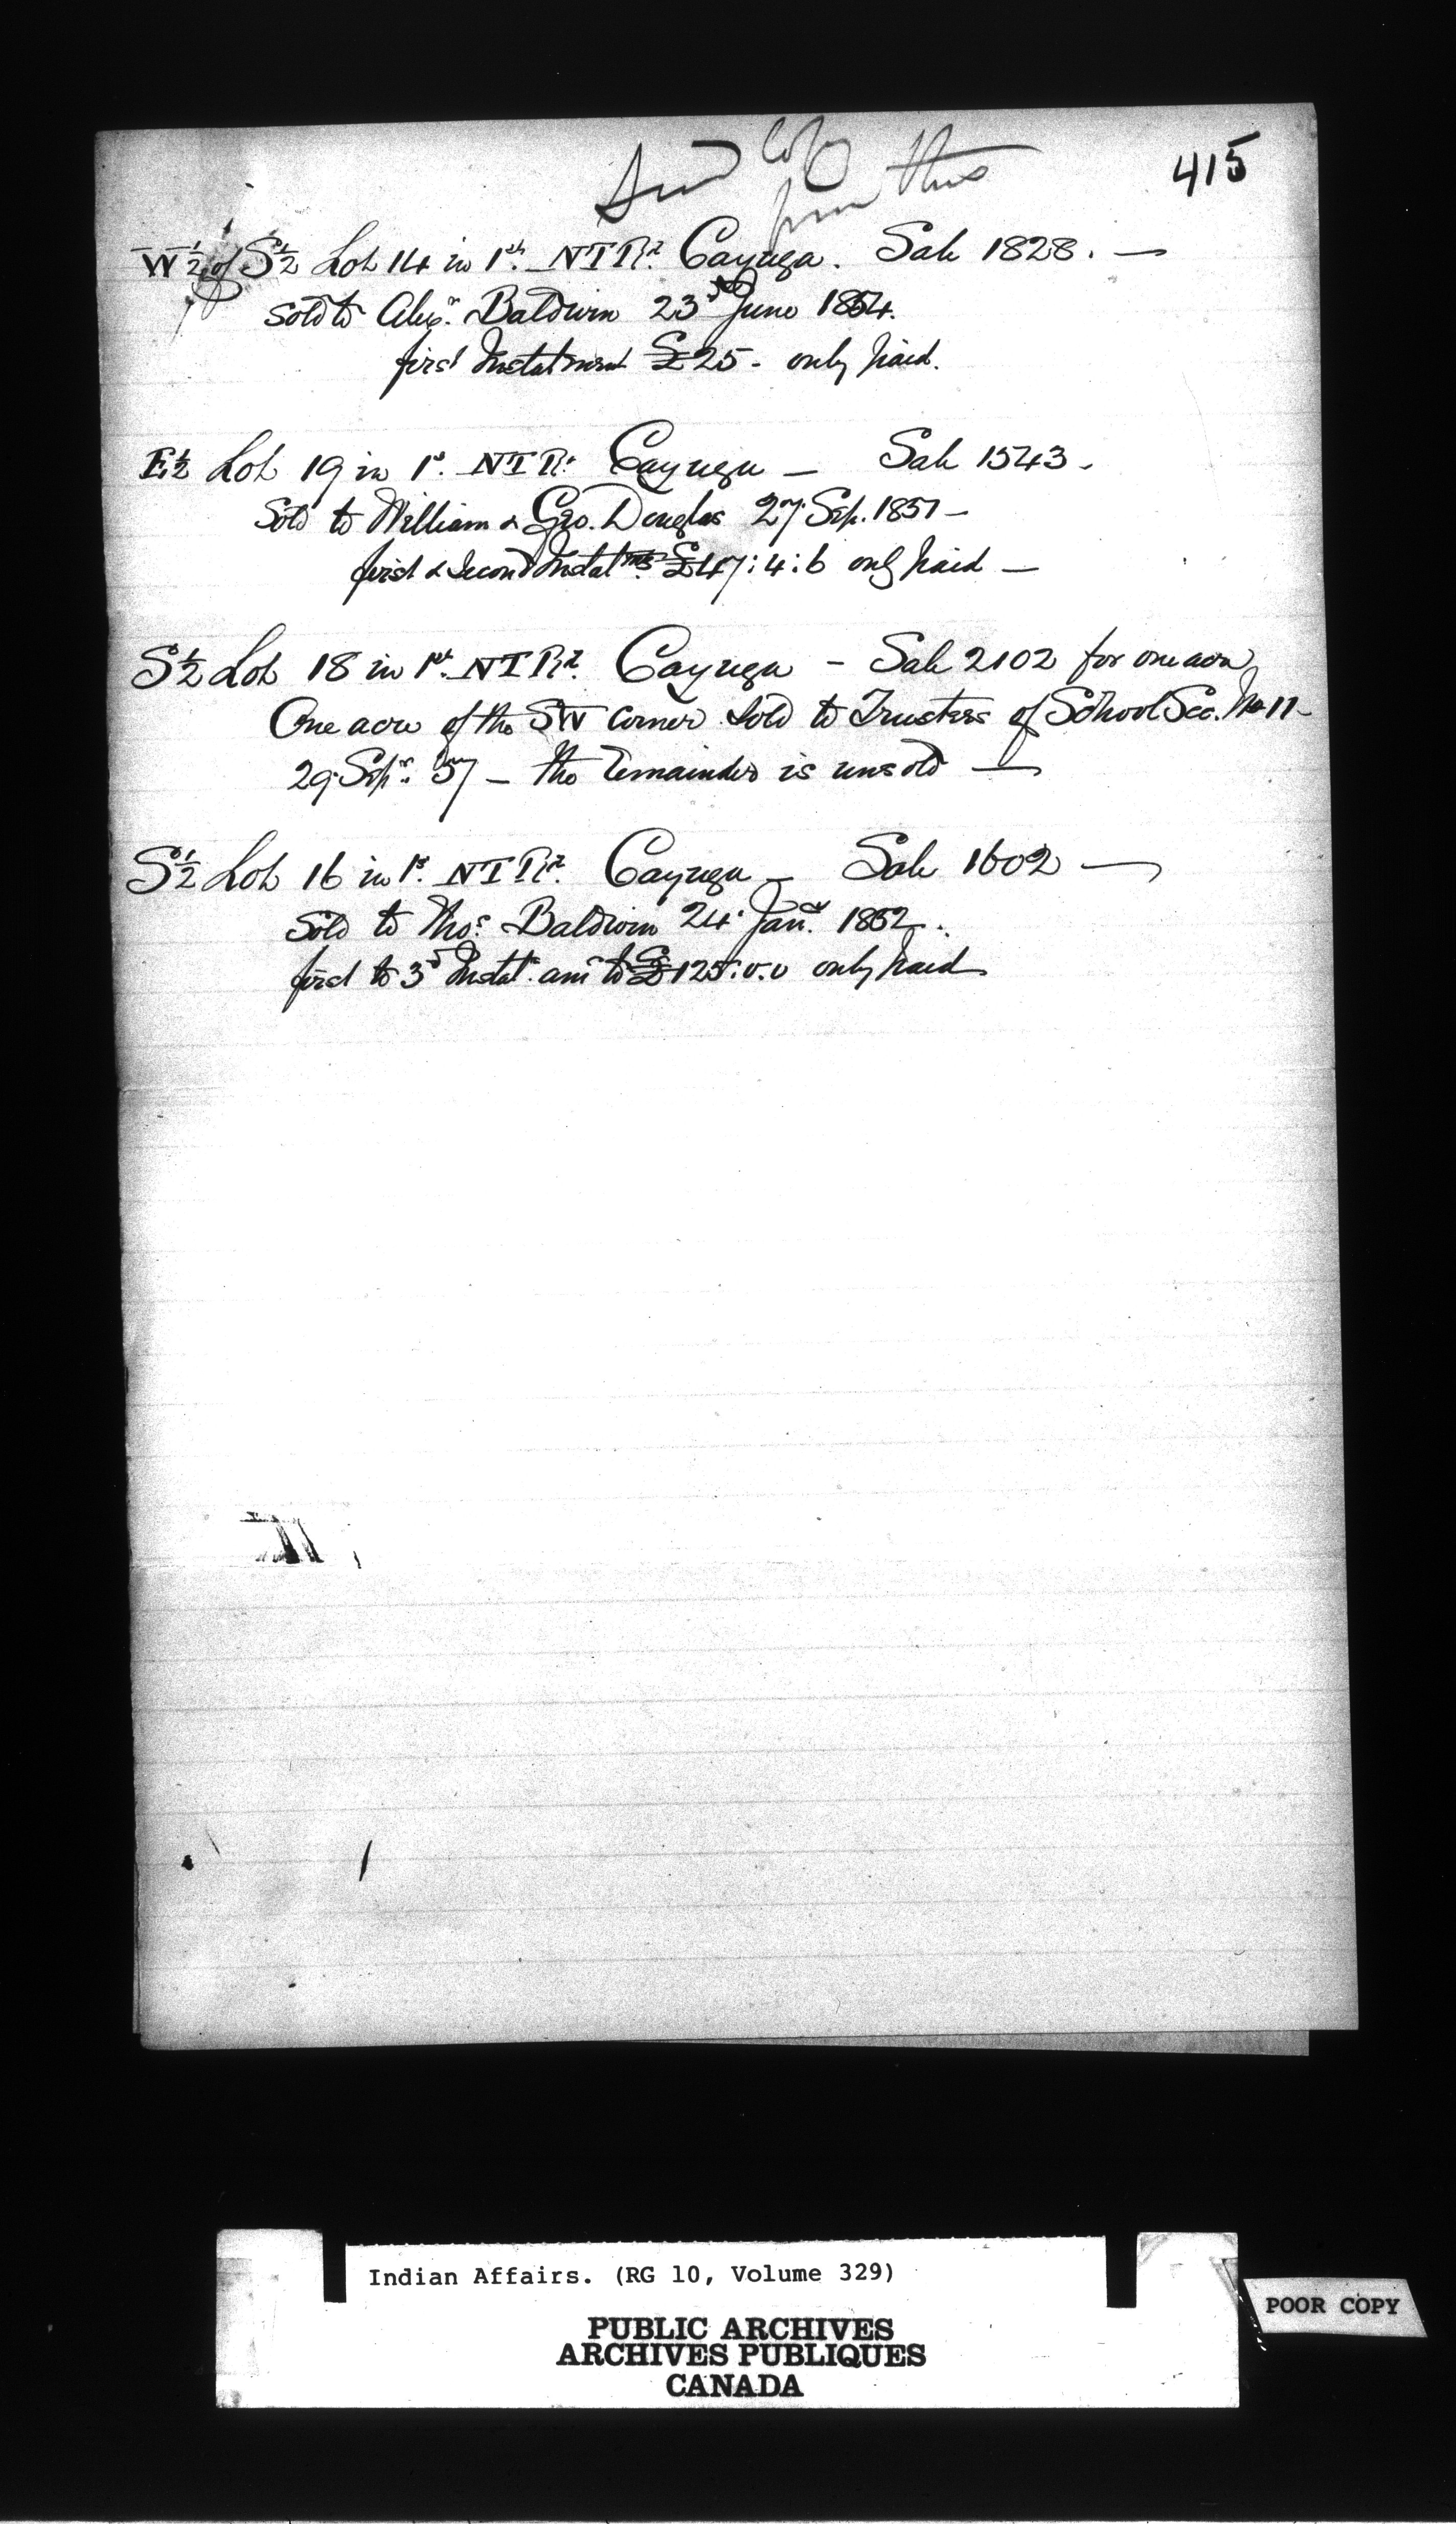 Send Copy
from this
415
W½ of S½ Lot 14 in 1st. NTRd. Cayuga. Sale 1828. —
Sold to Alexr. Baldwin 23d June 1854.
first Instalment £25 - only paid.
E½ Lot 19 in 1st. NTRd. Cayuga — Sale 1543 -
Sold to William & Geo. Douglas 27 Sep. 1851 -
first & Second Instalmts £47:4:6 only paid —
S½ Lot 18 in 1st. NTRd. Cayuga - Sale 2102 for one acre
One acre of the SW Corner Sold to Trustees of School Sec. No 11 -
29 Sepr. 57 - the remainder is unsold —
S½ Lot 16 in 1st. NTRd. Cayuga - Sale 1602 —
Sold to Thos. Baldwin 24 Jany. 1852.
first to 3d Instalt. amt to £125.0.0 only paid
Indian Affairs. (RG 10, Volume 329)
PUBLIC ARCHIVES
ARCHIVES PUBLIQUES
CANADA
POOR COPY